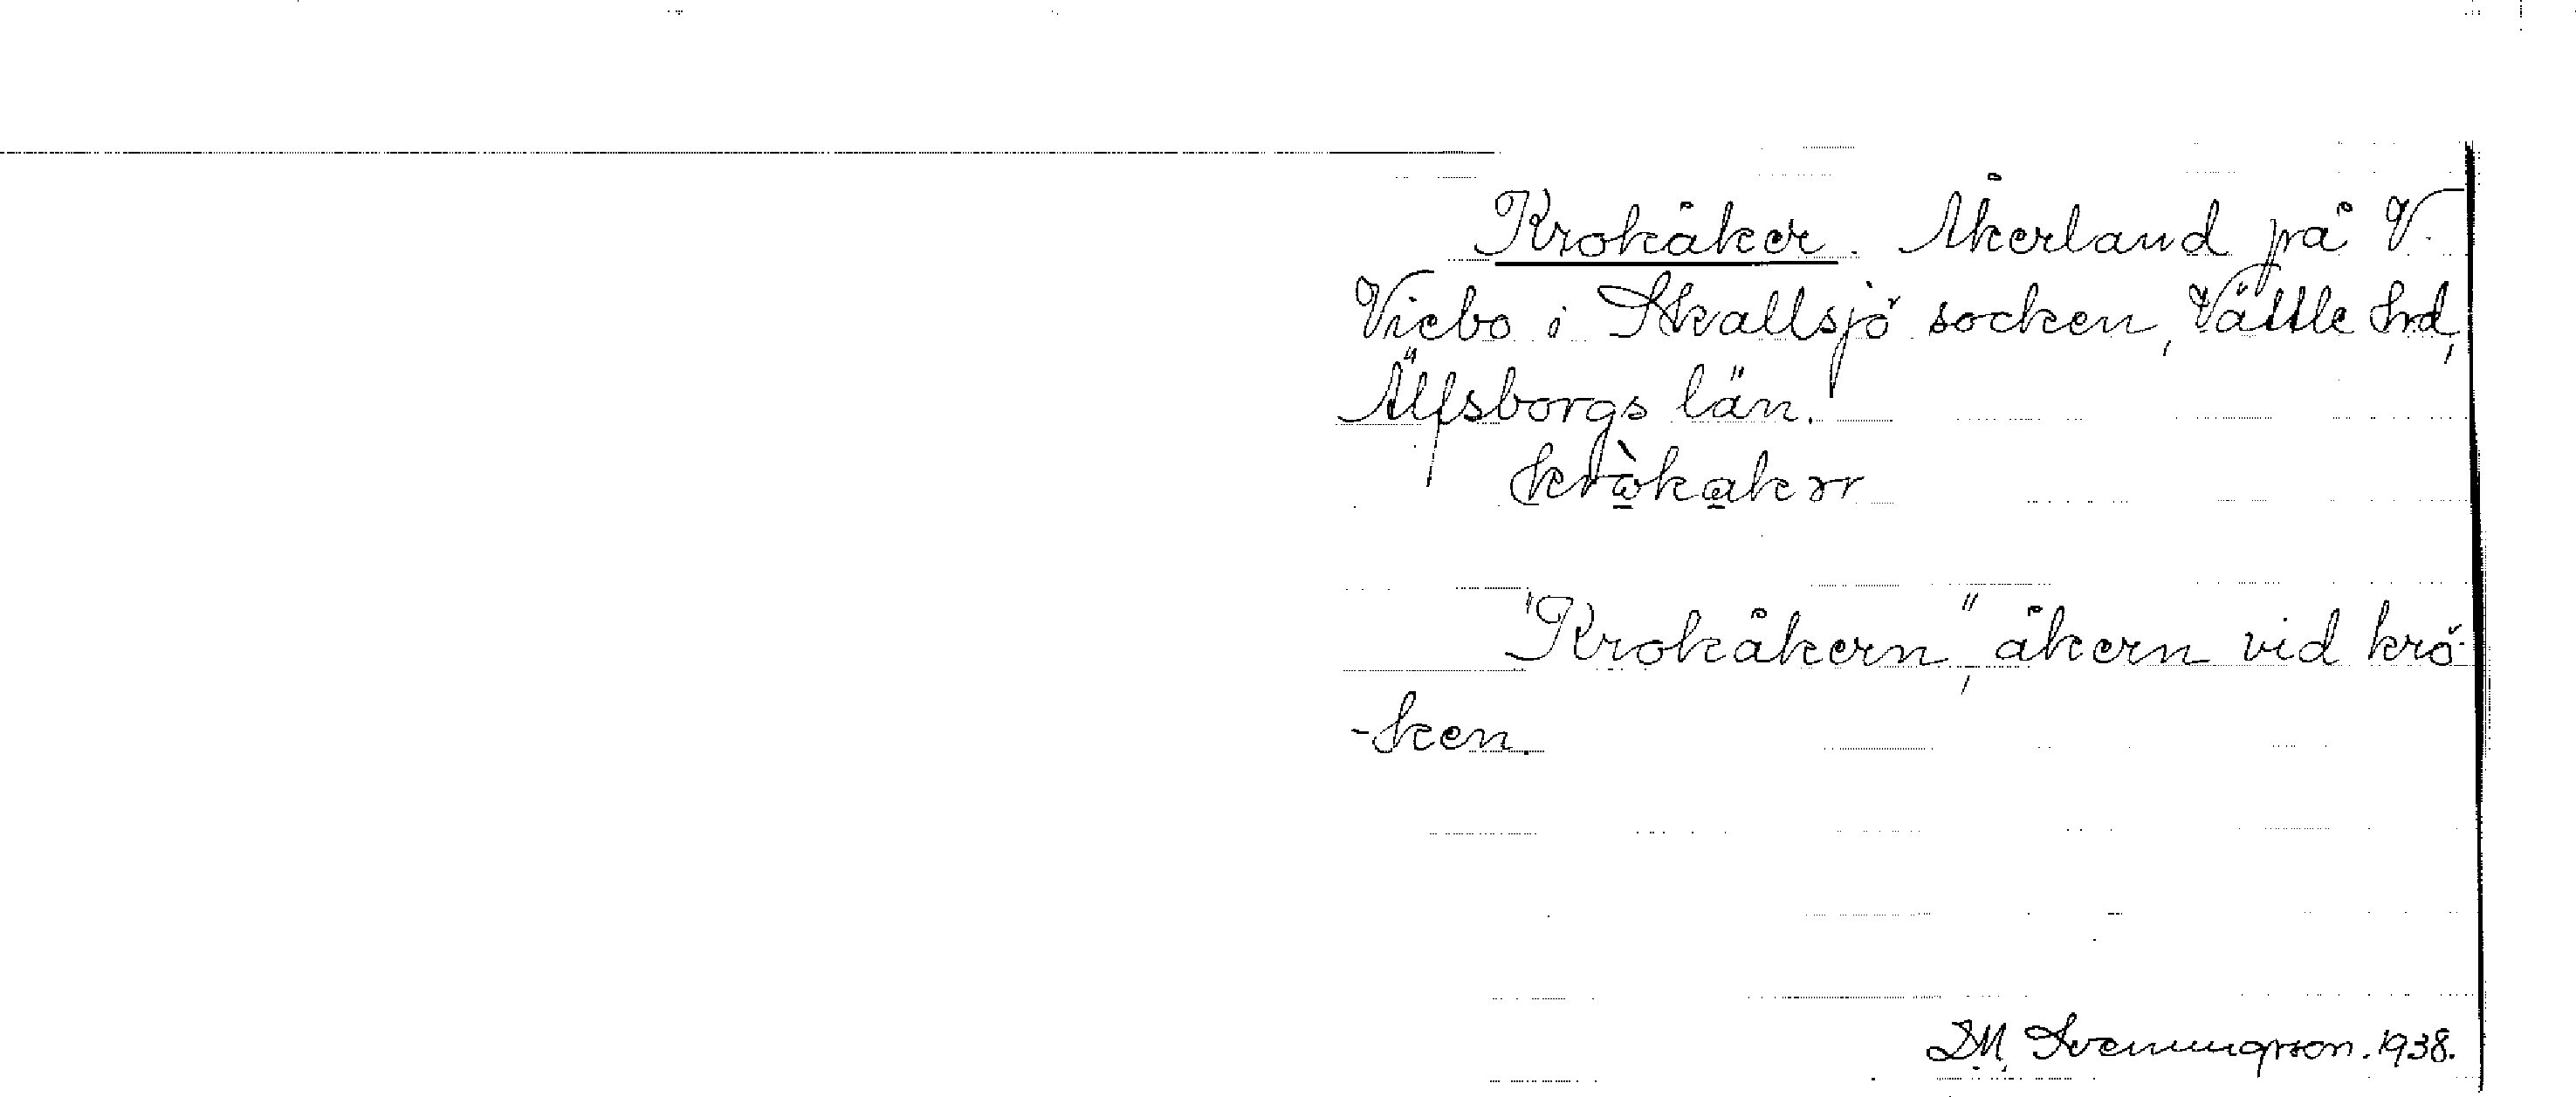 Krokåker. Åkerland på V.
Viebo i Skallsjö socken, Vättle hrd,
Älfsborgs län.
kròkakər
"Krokåkern", åkern vid krö-
-ken.
D.M. Svenungsson. 1938.